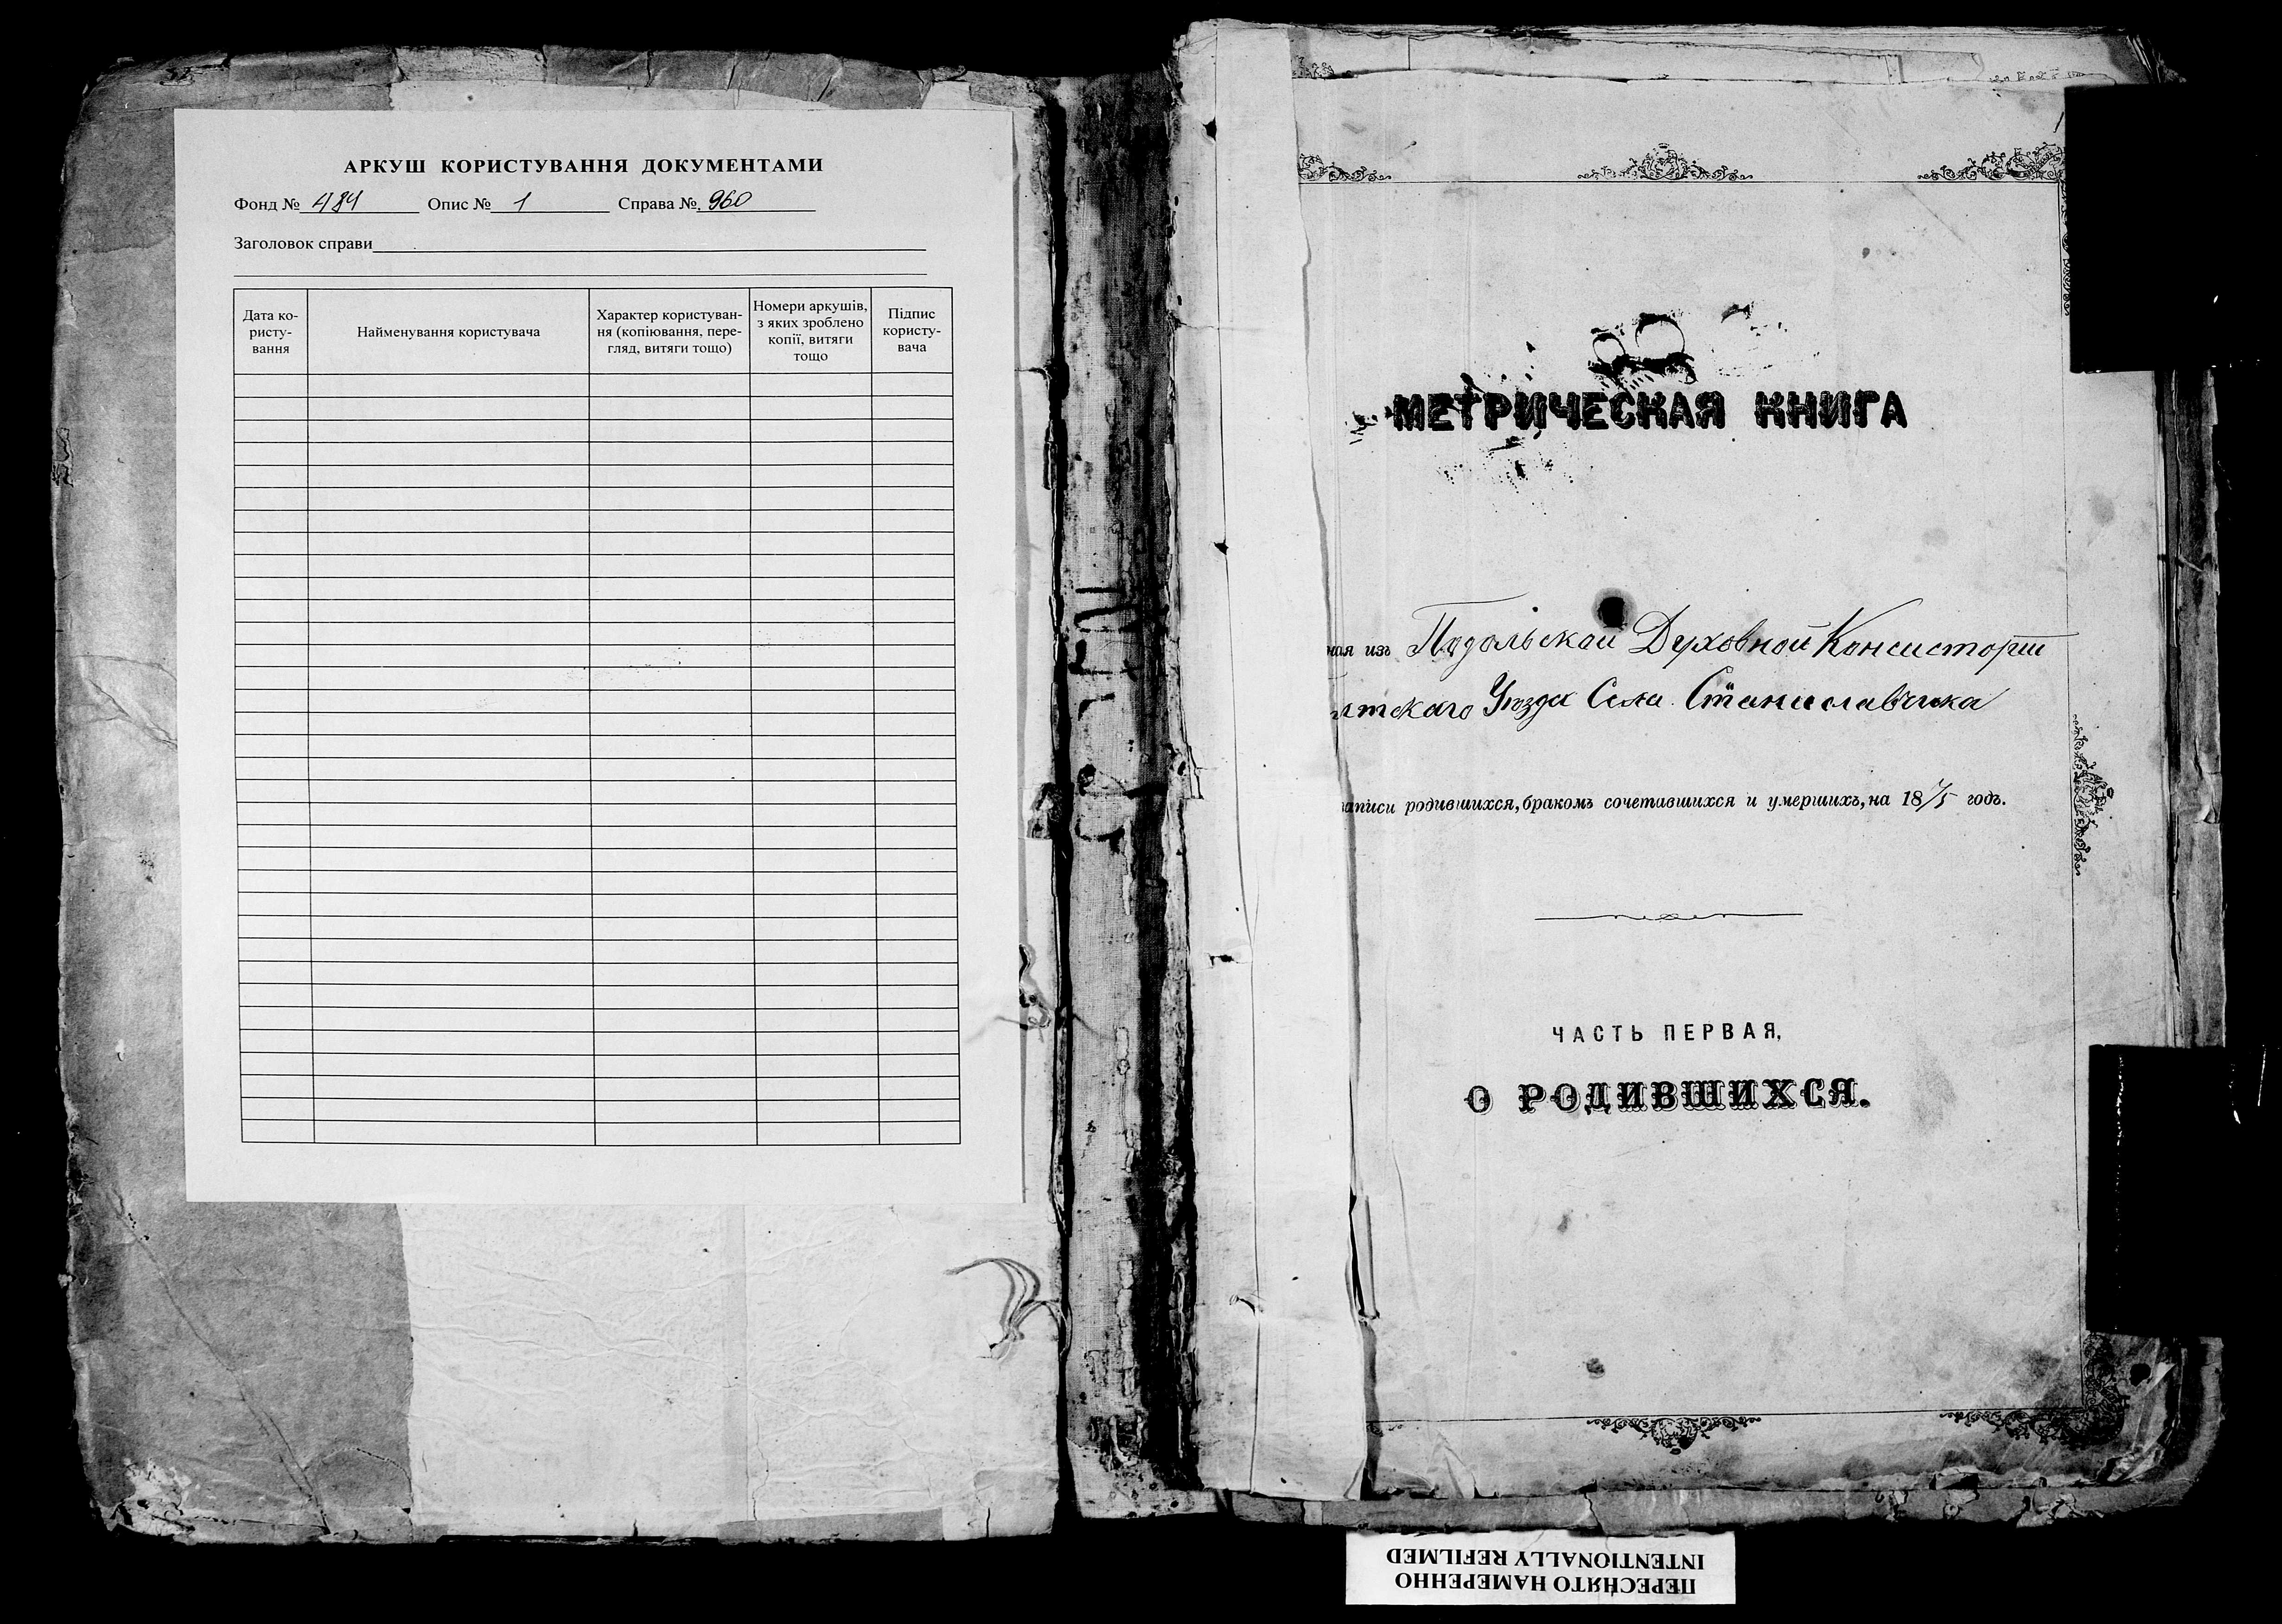 АРКУШ КОРИСТУВАННЯ ДОКУМЕНТАМИ
Фонд № 484 Опис № 1 Справа № 960
Заголовок справи
Дата ко-
ристу-
вання
Найменування користувача
Характер користуван-
ня (копіювання, пере-
гляд, витяги тощо)
Номери аркушів,
з яких зроблено
копії, витяги
тощо
Підпис
користу-
вача
МЕТРИЧЕСКАЯ КНИГА
ная изъ Подольской Духовной Консисторіи
Уѣзда Села Станиславчика
записи родившихся, бракомъ сочетавшихся и умершихъ, на 1875 годъ.
ЧАСТЬ ПЕРВАЯ,
О РОДИВШИХСЯ.
ПЕРЕСНЯТО НАМЕРЕННО
INTENTIONALLY REFILMED